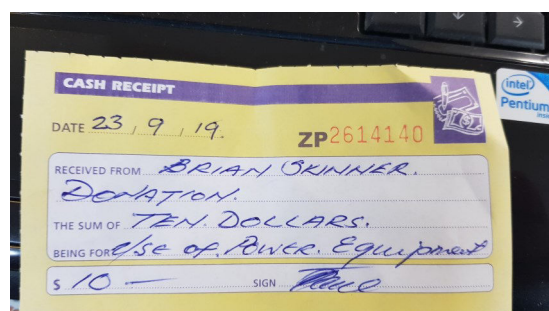 CASH RECEIPT
DATE 23, 9, 19.
ZP2614140
RECEIVED FROM BRIAN SKINNER.
DONATION.
THE SUM OF TEN. DOLLARS.
BEING FOR USE OF. POWER. Equipment
$ 10 — SIGN
intel
Pentium